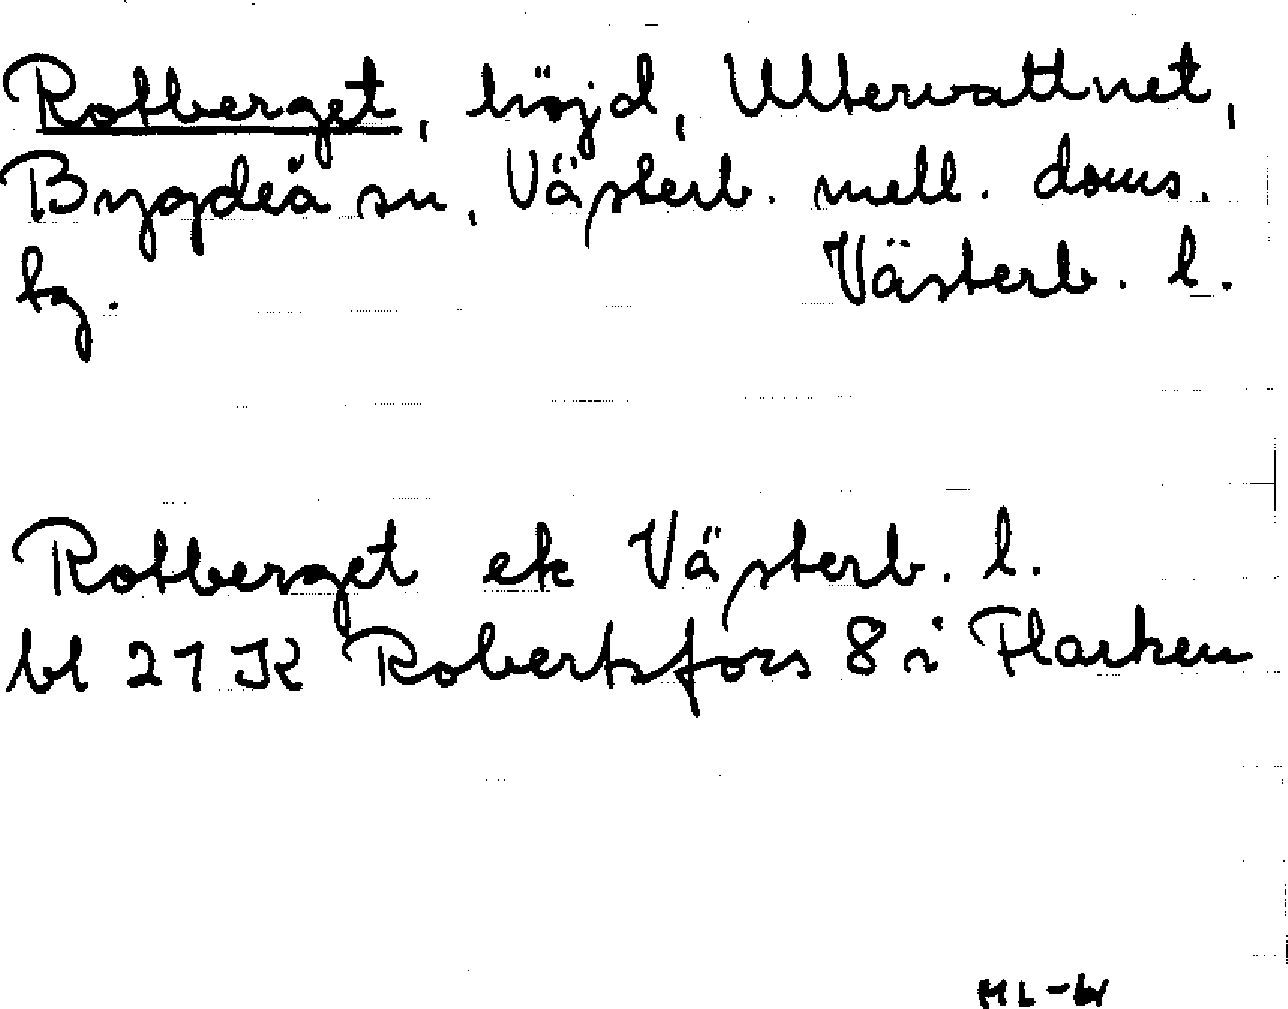 Rotberget, höjd, Ultervattnet,
Bygdeå sn, Västerb. mell. doms.
tg. Västerb. l.
Rotberget ek Västerb. l.
bl 21 K Robertsfors 8 i Flarken